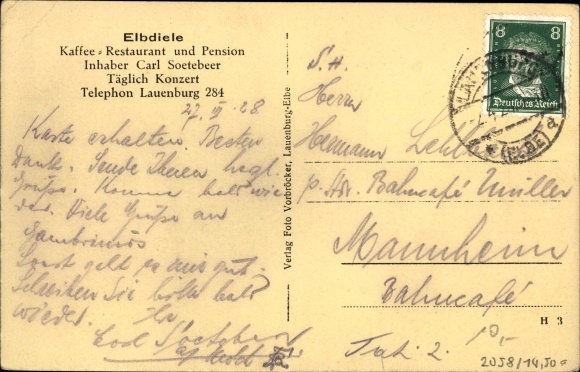 Elbdiele
Kaffee-Restaurant und Pension
Inhaber Carl Soetebeer
Täglich Konzert
Telephon Lauenburg 284
27. 28
Karte erhalten. Besten
Dank. Sende Ihnen hzgl.
Grüße. Komme bald wie
der. Viele Grüße an
Gambrinus
Sonst geht es mir gut.
Schreiben Sie bitte bald
wieder. Ihr
Carl Soetebeer
Verlag Foto Vorbröcker, Lauenburg-Elbe
8 8
Deutsches Reich
LAUENBURG
(ELBE)
S. H.
Herrn
Hermann
p. Adr. Bahncafé Müller
Mannheim
Bahncafé
H 3
10,-
2058/14,50=